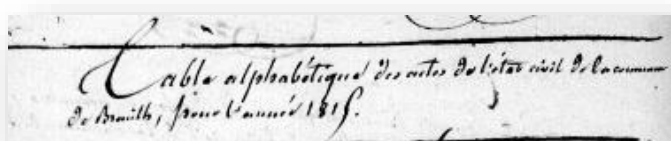 Table alphabétique des actes de l'état civil de la commune
de Brouilh, pour l'année 1815.